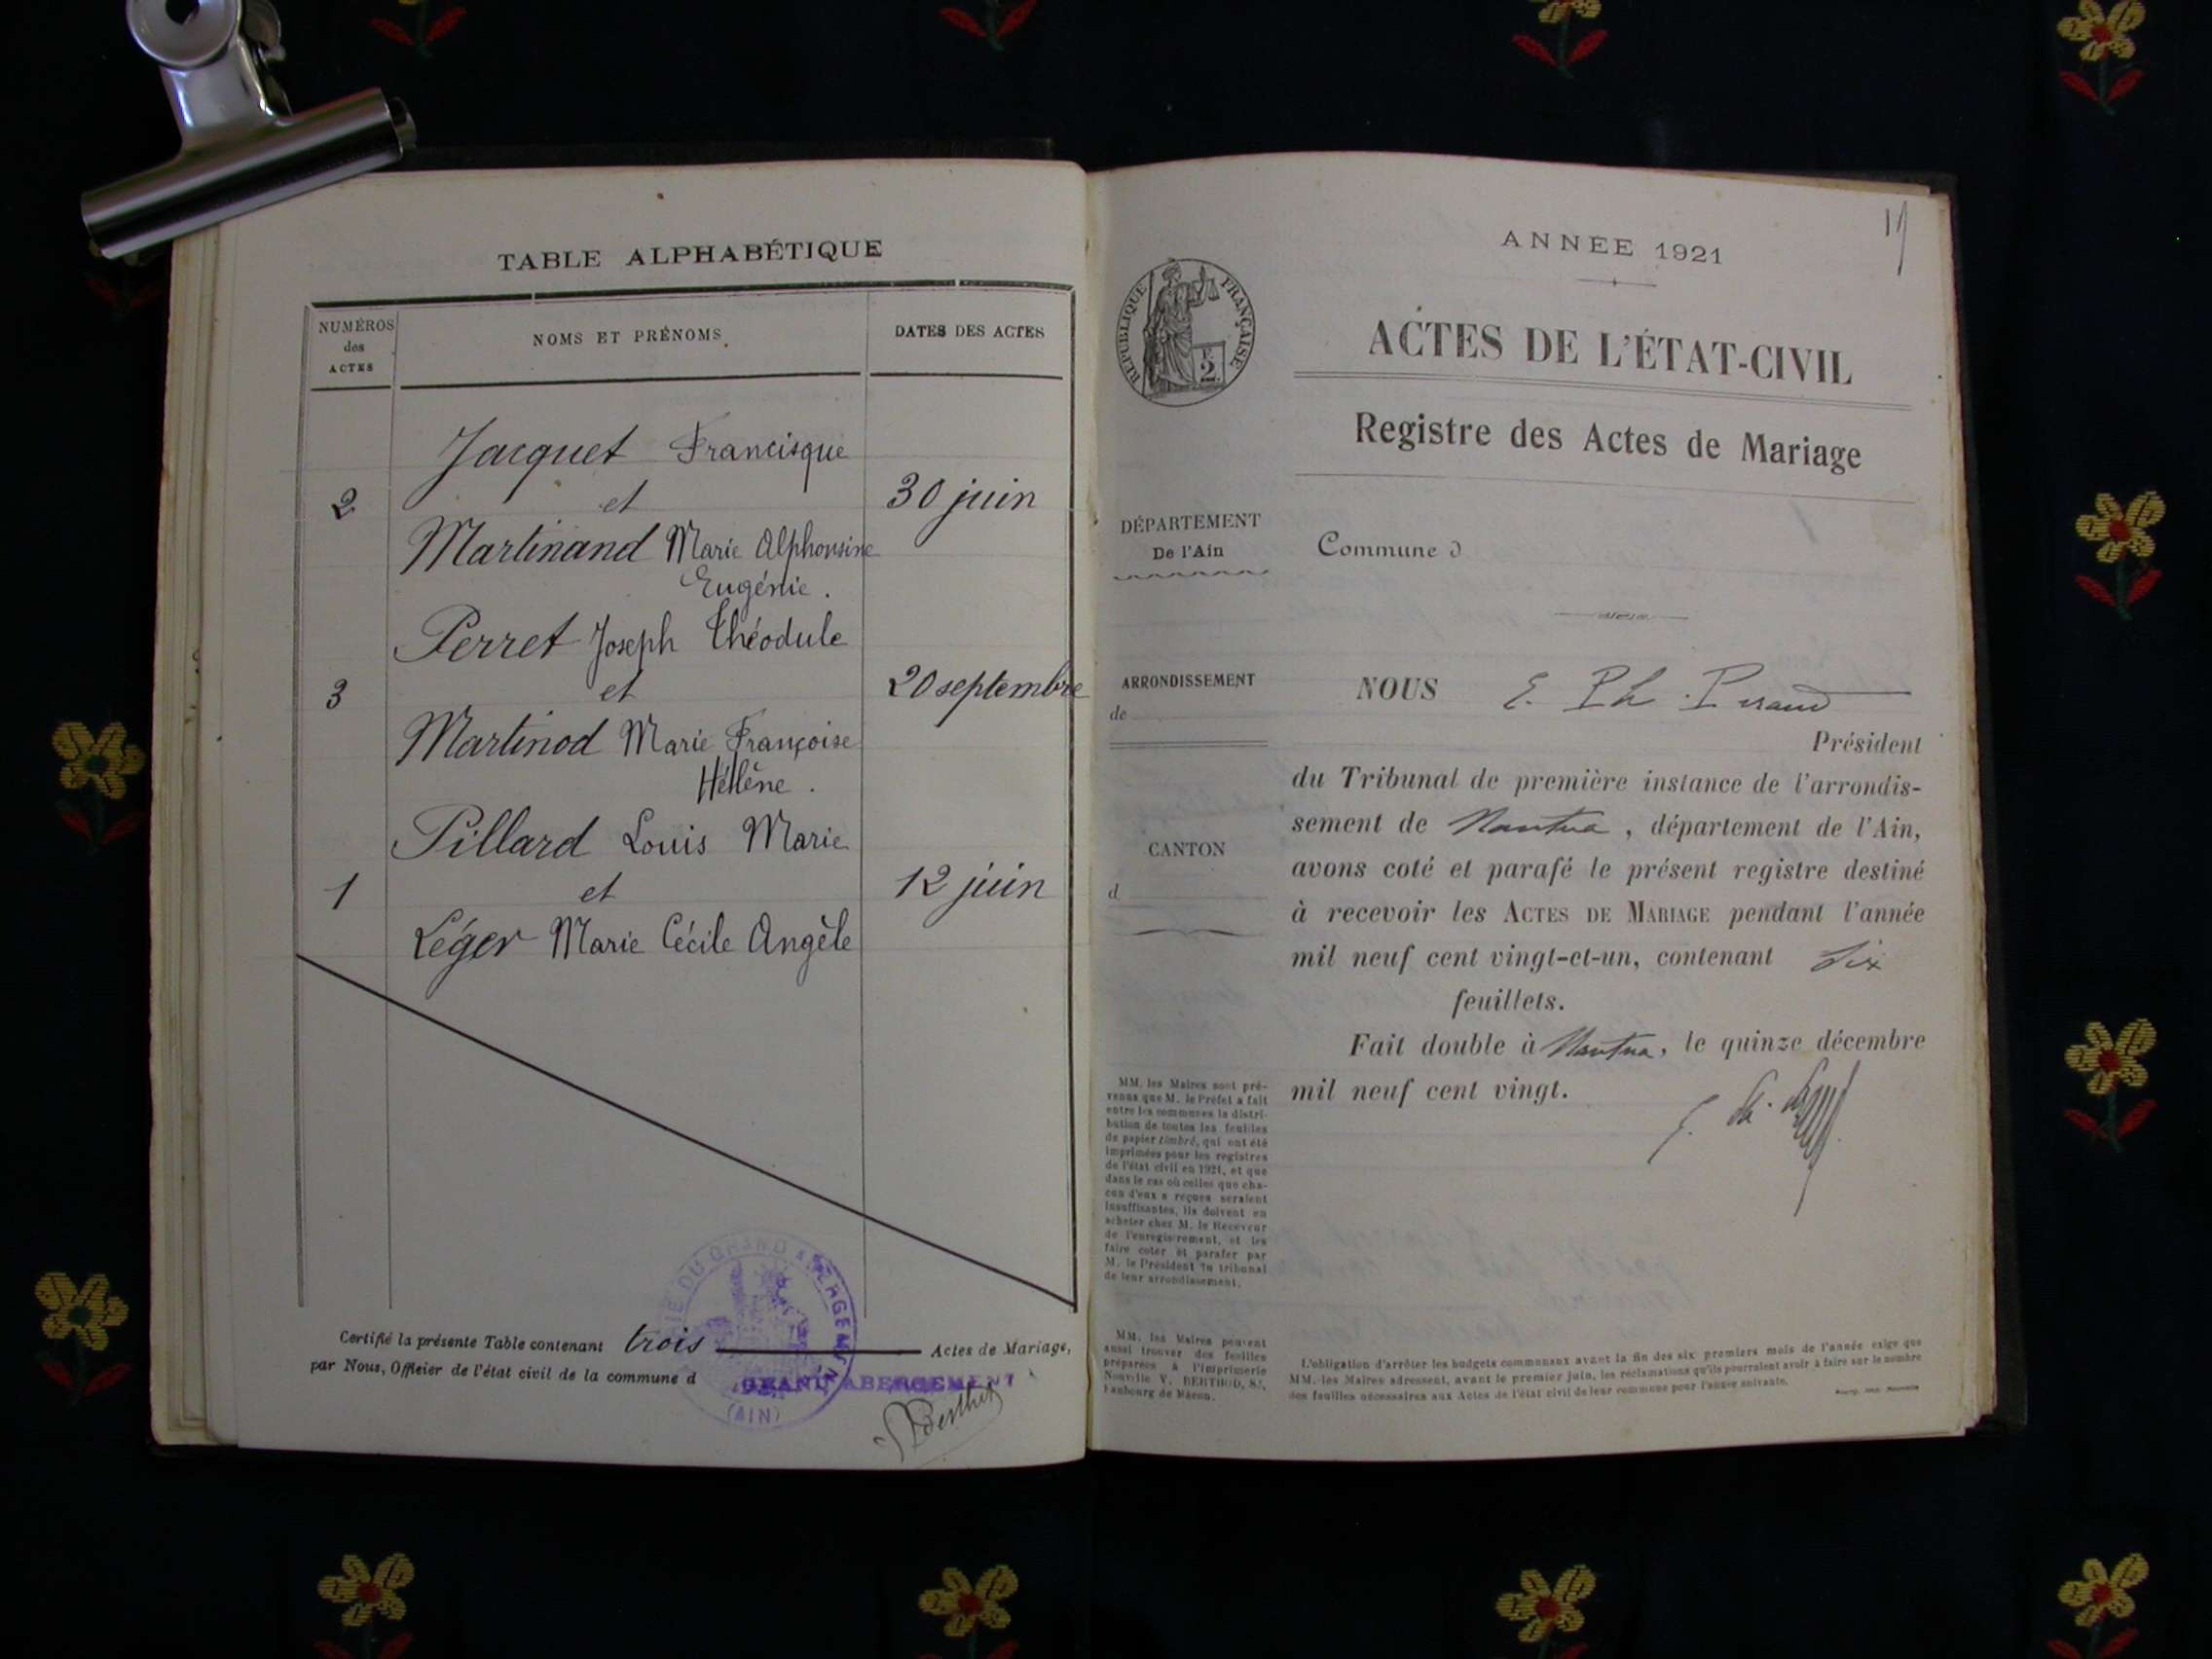 TABLE ALPHABÉTIQUE
NUMÉROS
des
ACTES
NOMS ET PRÉNOMS
DATES DES ACTES
Jacquet Francisque
2 et 30 juin
Martinand Marie Alphonsine
Eugénie.
Perret Joseph Théodule
3 et 20 septembre
Martinod Marie Françoise
Hélène.
Pillard Louis Marie
1 et 12 juin
Léger Marie Cécile Angèle
Certifié la présente Table contenant trois Actes de Mariage,
par Nous, Officier de l'état civil de la commune d
GRAND ABERGEMENT
DU GRAND ABERGEMENT
(AIN)
Berthet
ANNÉE 1921
RÉPUBLIQUE FRANÇAISE
2
ACTES DE L'ÉTAT-CIVIL
Registre des Actes de Mariage
DÉPARTEMENT
De l'Ain
Commune d
ARRONDISSEMENT
de
CANTON
d
NOUS E. Ph.
Président
du Tribunal de première instance de l'arrondis-
sement de Nantua, département de l'Ain,
avons coté et parafé le présent registre destiné
à recevoir les ACTES DE MARIAGE pendant l'année
mil neuf cent vingt-et-un, contenant six
feuillets.
Fait double à Nantua, le quinze décembre
mil neuf cent vingt.
MM. les Maires sont pré-
venus que M. le Préfet a fait
entre les communes la distri-
bution de toutes les feuilles
de papier timbré, qui ont été
imprimées pour les registres
de l'état civil en 1921, et que
dans le cas où celles que cha-
cun d'eux a reçues seraient
insuffisantes, ils doivent en
acheter chez M. le Receveur
de l'enregistrement, et les
faire coter et parafer par
M. le Président du tribunal
de leur arrondissement.
MM. les Maires peuvent
aussi trouver des feuilles
préparées à l'Imprimerie
Nouvelle V. BERTHOD,
Faubourg de Mâcon.
L'obligation d'arrêter les budgets communaux avant la fin des six premiers mois de l'année exige que
MM. les Maires adressent, avant le premier juin, les réclamations qu'ils pourraient avoir à faire sur le nombre
des feuilles nécessaires aux Actes de l'état civil de leur commune pour l'année suivante.